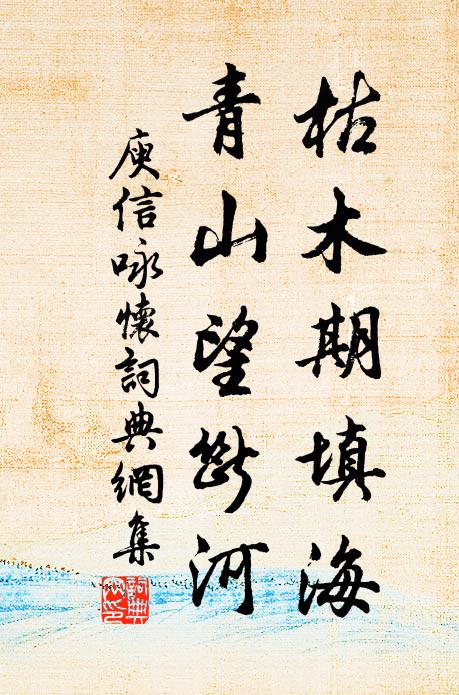 枯木期填海
青山望斷河
庾信咏懷詞典網集